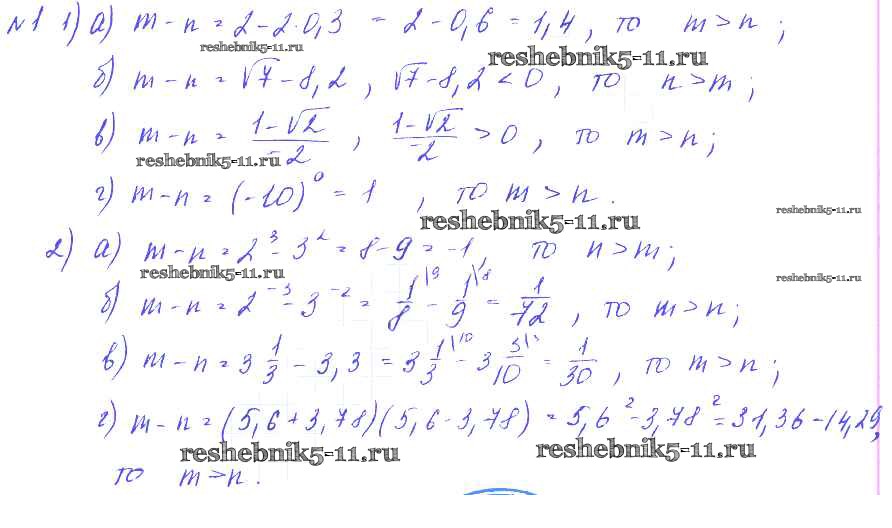 №1 1) а) m − n = 2 − 2·0,3 = 2 − 0,6 = 1,4, то m > n;
reshebnik5-11.ru reshebnik5-11.ru
б) m − n = √7 − 8,2, √7 − 8,2 < 0, то n > m;
в) m − n = (1−√2)/−2, (1−√2)/−2 > 0, то m > n;
reshebnik5-11.ru
г) m − n = (−10)⁰ = 1, то m > n.
reshebnik5-11.ru reshebnik5-11.ru
2) а) m − n = 2³ − 3² = 8 − 9 = −1, то n > m;
reshebnik5-11.ru reshebnik5-11.ru
б) m − n = 2⁻³ − 3⁻² = 1\⁹/8 − 1\⁸/9 = 1/72, то m > n;
в) m − n = 3 1/3 − 3,3 = 3 1\¹⁰/3 − 3 3\³/10 = 1/30, то m > n;
г) m − n = (5,6 + 3,78)(5,6 − 3,78) = 5,6² − 3,78² = 31,36 − 14,29,
reshebnik5-11.ru reshebnik5-11.ru
то m > n.